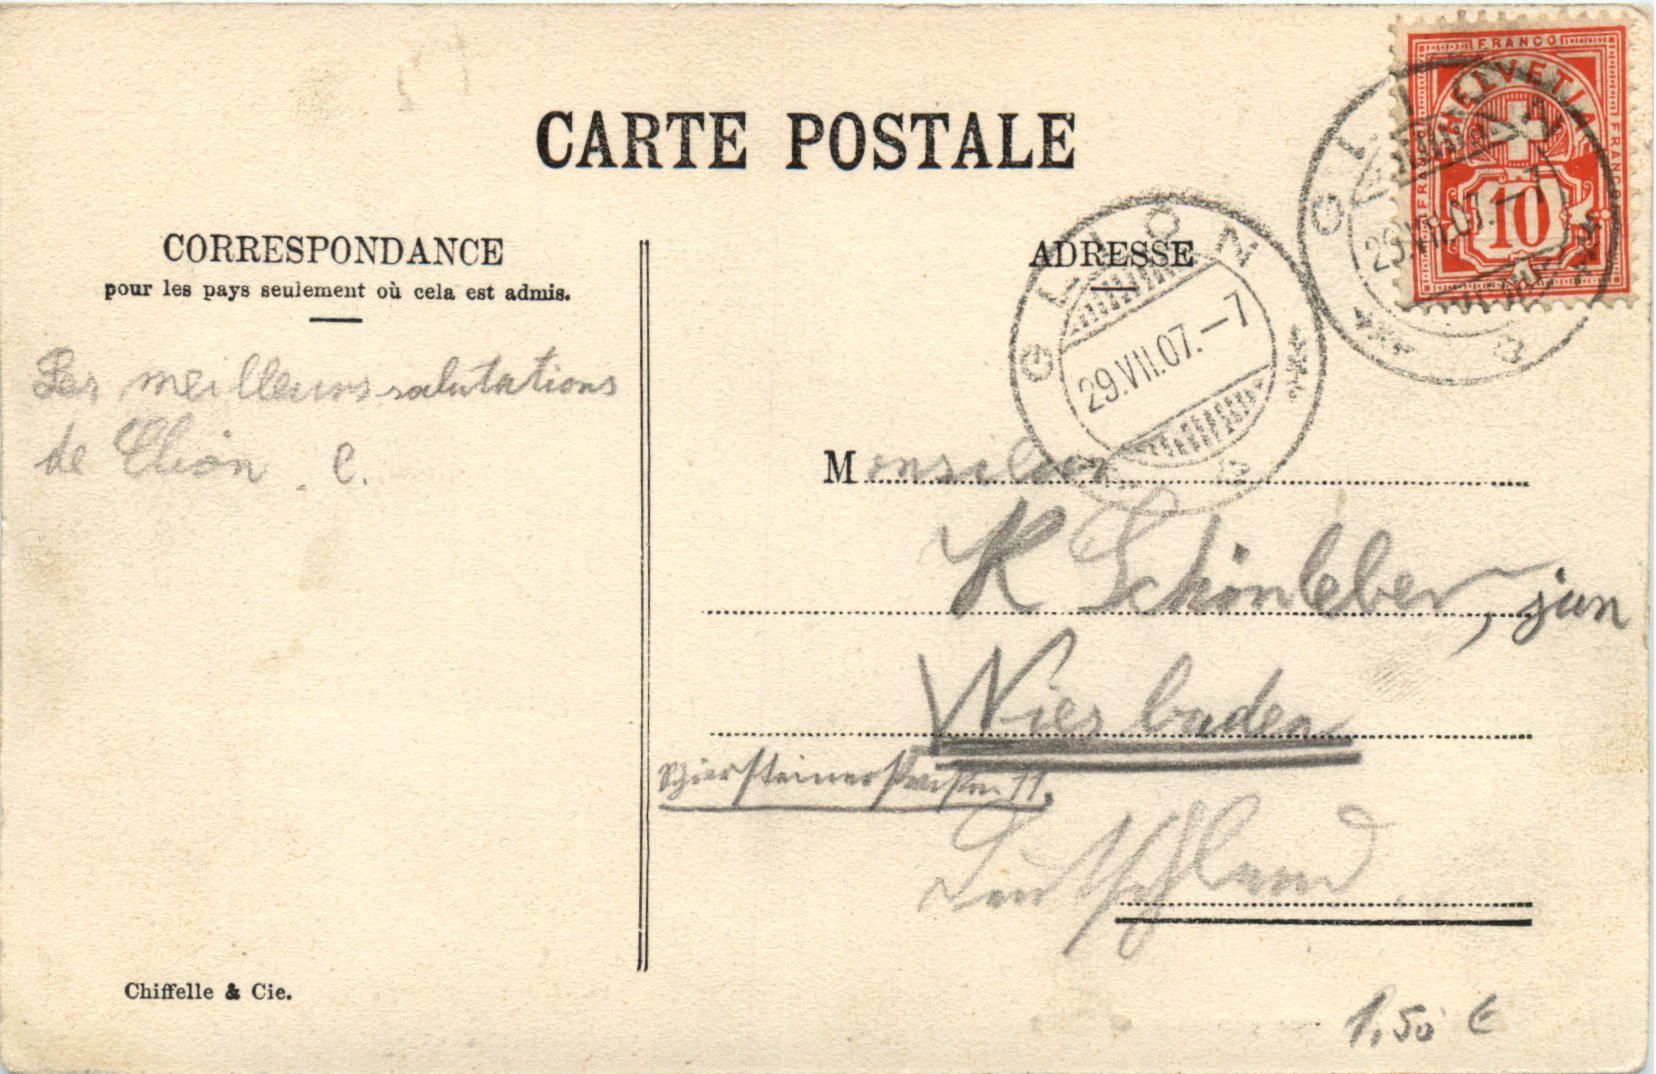 CARTE POSTALE
CORRESPONDANCE
pour les pays seulement où cela est admis.
Les meilleurs salutations
de Glion. C.
Chiffelle & Cie.
FRANCO
HELVETIA
FRANCO
FRANCO
10
GLION
29.VII.07.–7
GLION
29.VII.07.–7
ADRESSE
Monsieur
K Schönleber, jun
Wiesbaden
Schiersteinerstraße 11.
Deutschland.
1,50 €